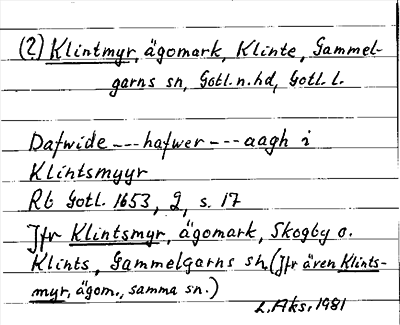 (2) Klintmyr, ägomark, Klinte, Gammel-
garns sn, Gotl. n. hd, Gotl. l.
Dafwide --- hafwer --- aagh i
Klintsmyyr
Rb Gotl. 1653, 2, s. 17
Jfr Klintsmyr, ägomark, Skogby o.
Klints, Gammelgarns sn. (Jfr även Klints-
myr, ägom., samma sn.)
L. Aks. 1981